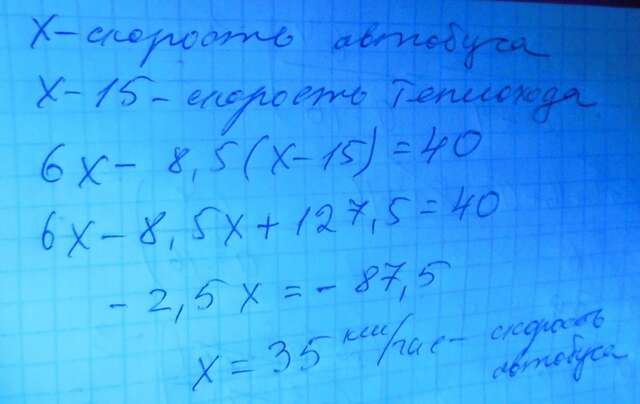 x - скорость автобуса
x - 15 - скорость теплохода
6x - 8,5(x-15) = 40
6x - 8,5x + 127,5 = 40
- 2,5x = - 87,5
x = 35 км/час - скорость автобуса